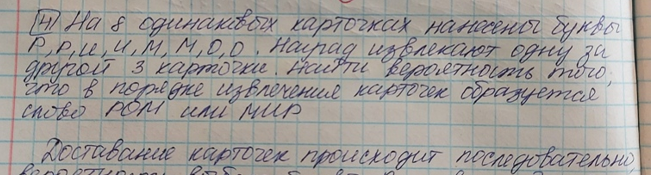 14 На 8 одинаковых карточках нанесены буквы
Р, Р, И, И, М, М, О, О. Наугад извлекают одну за
другой 3 карточки. Найти вероятность того,
что в порядке извлечения карточек образуется
слово РОМ или МИР
Доставание карточек происходит последовательно,